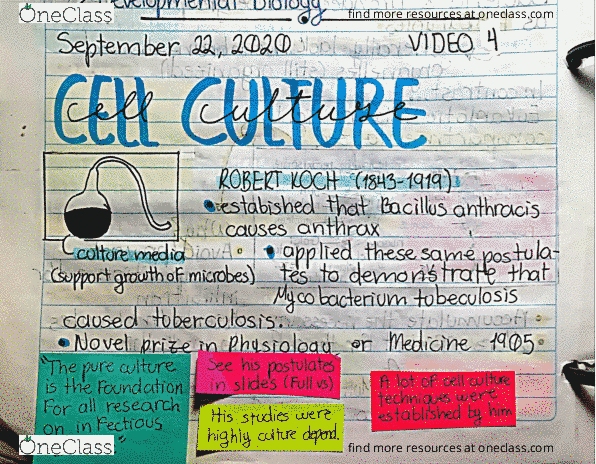 OneClass
Developmental Biology
find more resources at oneclass.com
September 22, 2020
VIDEO 4
CELL CULTURE
cell culture
ROBERT KOCH (1843-1919)
• estabished that Bacillus anthracis
causes anthrax
culture media
(support growth of microbes)
• applied these same postula-
tes to demonstrate that
Mycobacterium tubeculosis
caused tuberculosis.
• Novel prize in Physiology or Medicine 1905
"The pure culture
is the Foundation
For all research
on infectious
"
See his postulates
in slides (Full vs)
His studies were
highly culture depend.
A lot of cell culture
techniques were
established by him
OneClass
find more resources at oneclass.com